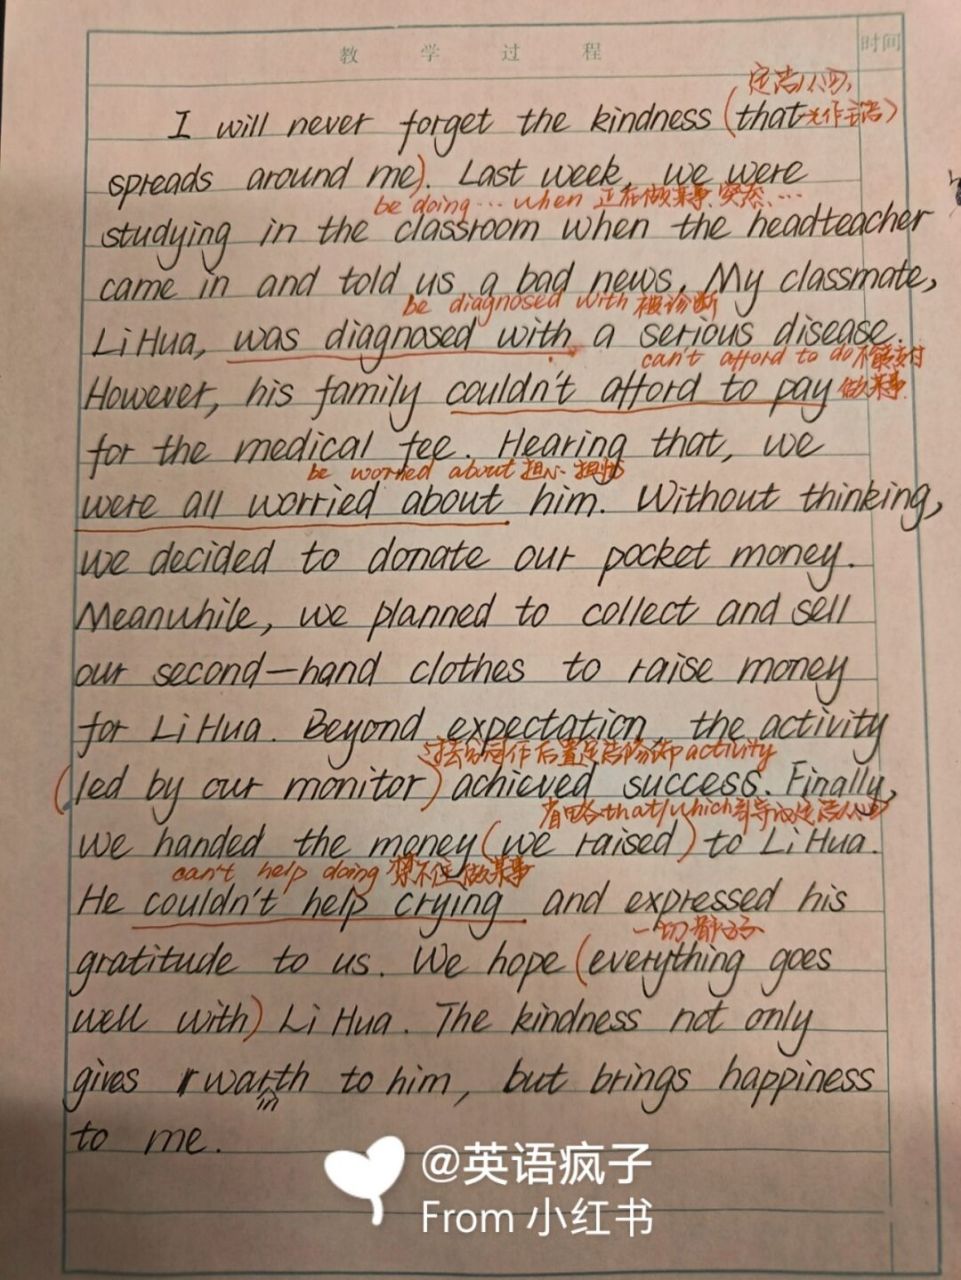 教 学 过 程 时间
定语从句
I will never forget the kindness (that 先作主语)
spreads around me). Last week, we were
be doing … when 正在做某事,突然…
studying in the classroom when the headteacher
came in and told us a bad news. My classmate,
be diagnosed with 被诊断
Li Hua, was diagnosed with a serious disease.
can't afford to do 不能支付
However, his family couldn't afford to pay 做某事
for the medical fee. Hearing that, we
be worried about 担心 担忧
were all worried about him. Without thinking,
we decided to donate our pocket money.
Meanwhile, we planned to collect and sell
our second-hand clothes to raise money
for Li Hua. Beyond expectation, the activity
过去分词作后置定语修饰 activity
(led by our monitor) achieved success. Finally,
省略that/which引导的定语从句
we handed the money (we raised) to Li Hua.
can't help doing 禁不住做某事
He couldn't help crying and expressed his
一切都好
gratitude to us. We hope (everything goes
well with) Li Hua. The kindness not only
gives warmth to him, but brings happiness
to me.
@英语疯子
From 小红书